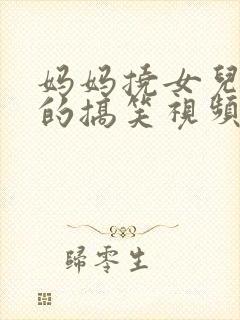 妈妈挠女兒
的搞笑視頻
歸零生